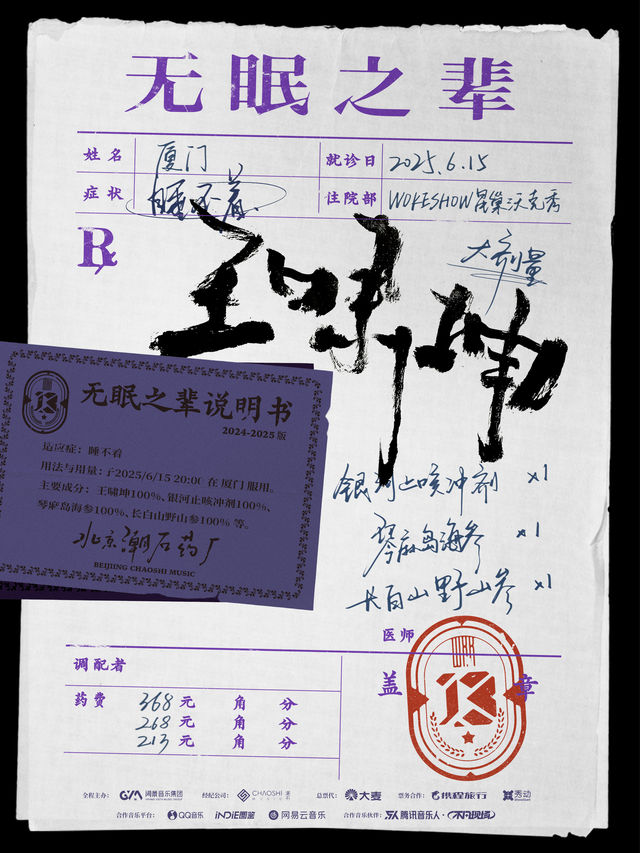 无眠之辈
姓名 厦门 就诊日 2025.6.15
症状 睡不着 住院部 WOKESHOW昆巢沃克秀
R
大剂量
王啸坤
无眠之辈说明书
2024-2025版
适应症：睡不着
用法与用量：于2025/6/15 20:00 在厦门服用。
主要成分：王啸坤100%、银河止咳冲剂100%、
琴麻岛海参100%、长白山野山参100% 等。
北京潮石药厂
BEIJIING CHAOSHI MUSIC
银河止咳冲剂 x1
琴麻岛海参 x1
长白山野山参 x1
医师
调配者
盖 章
药费 368 元 角 分
268 元 角 分
213 元 角 分
全程主办： GYM 阅景音乐集团 经纪公司： CHAOSHI MUSIC 总票代： 大麦 票务合作： 携程旅行 秀动
合作音乐平台： QQ音乐 iNDiE圈鉴 网易云音乐 合作音乐伙伴： 腾讯音乐人·不凡现场